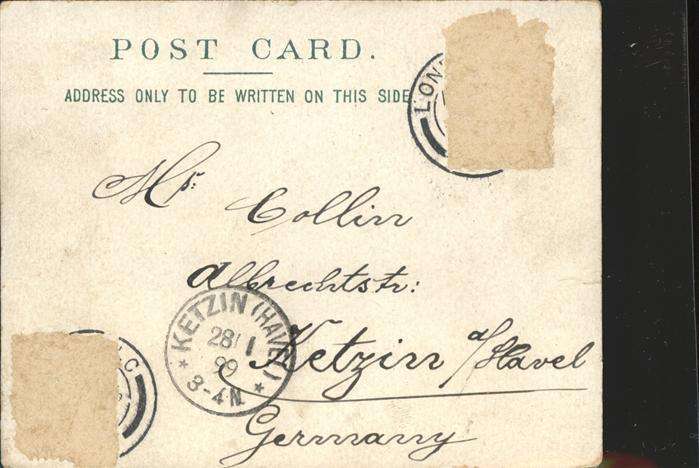 POST CARD.
ADDRESS ONLY TO BE WRITTEN ON THIS SIDE
LON
Mr: Collin
Albrechtstr:
Ketzin a/Havel
Germany
KETZIN (HAVEL)
28/1
99
* 3-4N. *
C